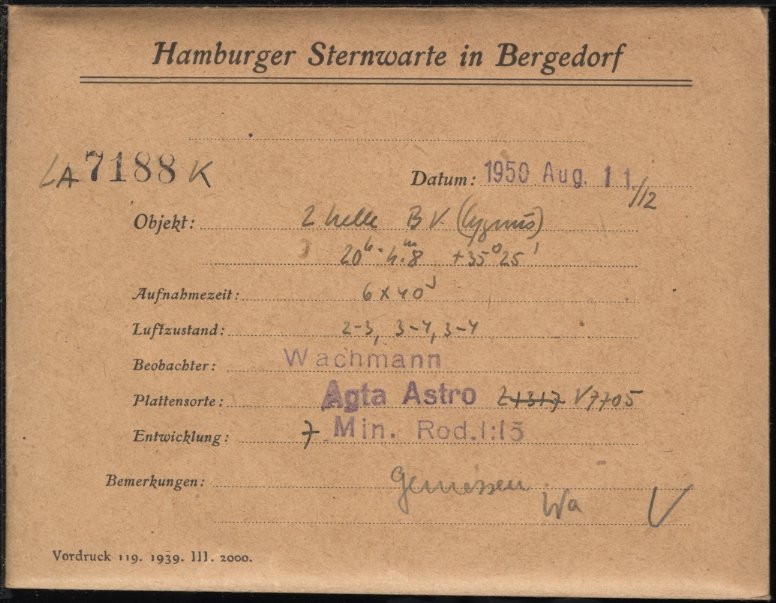 Hamburger Sternwarte in Bergedorf
LA 7188 K
Datum: 1950 Aug. 11/12
Objekt: 2 helle BV (Cygnus)
20h 4m.8 +35°25'
Aufnahmezeit: 6 x 40s
Luftzustand: 2-3, 3-4, 3-4
Beobachter: Wachmann
Plattensorte: Agfa Astro Z1317 V9705
Entwicklung: 7 Min. Rod. 1:15
Bemerkungen: Gemessen
Wa V
Vordruck 119. 1939. III. 2000.